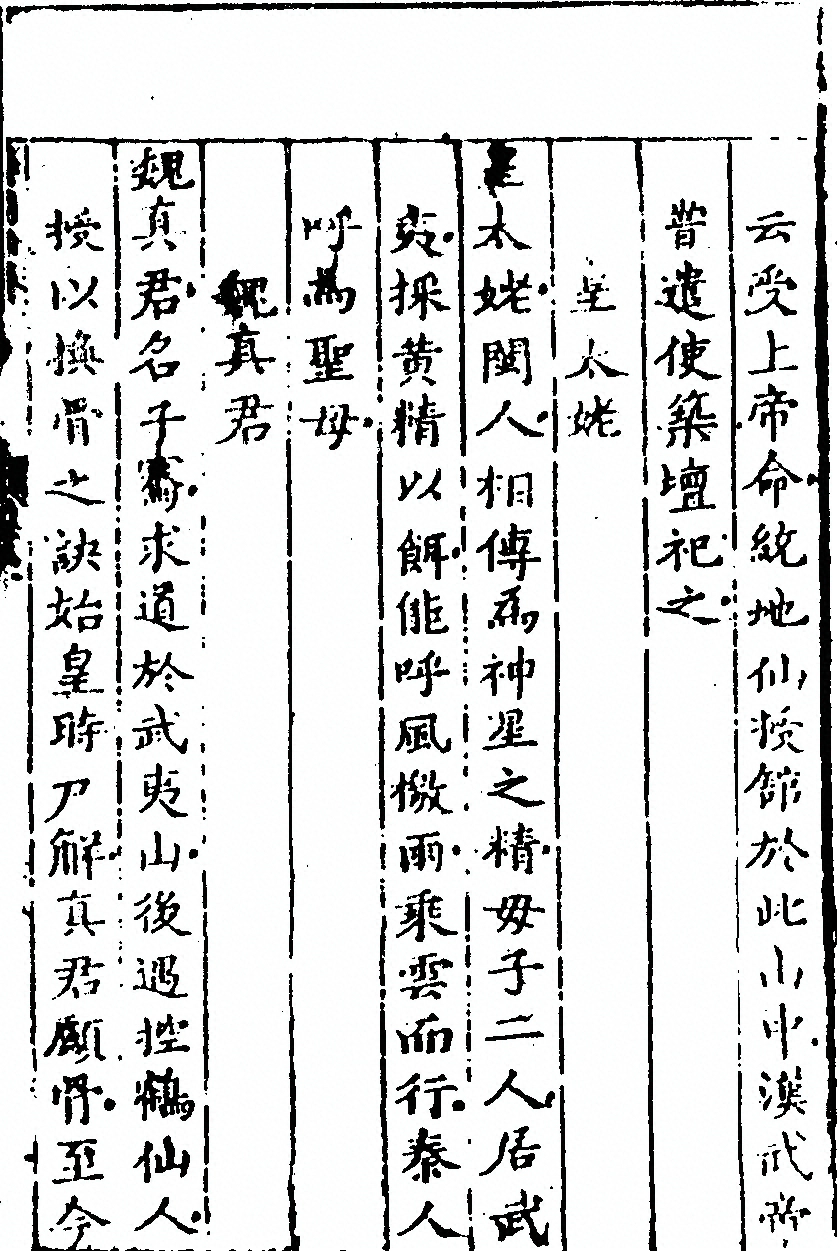 云受上帝命統地仙授館於此山中漢武帝
甞遣使築壇祀之
皇太姥
皇太姥閩人相傳為神星之精毋子二人居武
夷採黄精以餌能呼風檄雨乘雲而行秦人
呼為聖母
魏真君
魏真君名子騫求道於武夷山後遇控鶴仙人
授以換骨之訣始皇時尸解真君顱骨至今